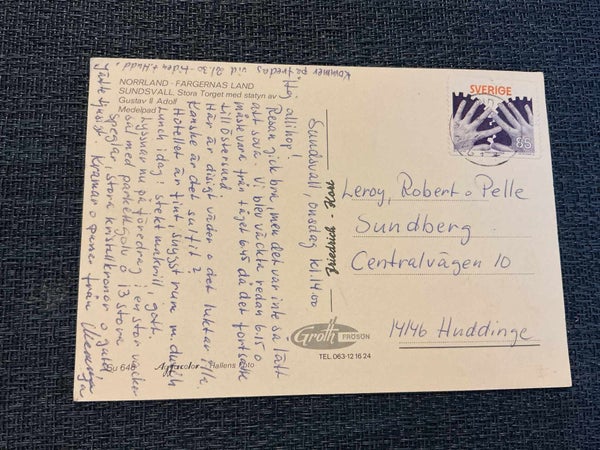 NORRLAND - FÄRGERNAS LAND
SUNDSVALL. Stora Torget med statyn av
Gustav II Adolf
Medelpad
Sundsvall, onsdag kl. 14.00
Hej allihop!
Resan gick bra, men det var inte så lätt
att sova. Vi blev väckta redan 6.15 o
måste vara från tåget 6.45 då det fortsatte
till Östersund
Här är disigt väder o det luktar
Kanske är det sulfit?
Hotellet är fint snyggt rum m. dusch
Lunch idag: stekt makrill, gott.
Lyssnar nu på föredrag i en stor vacker
sal med parkettgolv o 13 stora
speglar, stora kristallkronor o
Kramar o från Mamma
Kommer på fredag vid 21.30-tiden t. Hudd.
SVERIGE
85
Leroy, Robert o Pelle
Sundberg
Centralvägen 10
14146 Huddinge
Groth FRÖSÖN
TEL. 063-12 16 24
Su 646
Agfacolor - Hallens foto